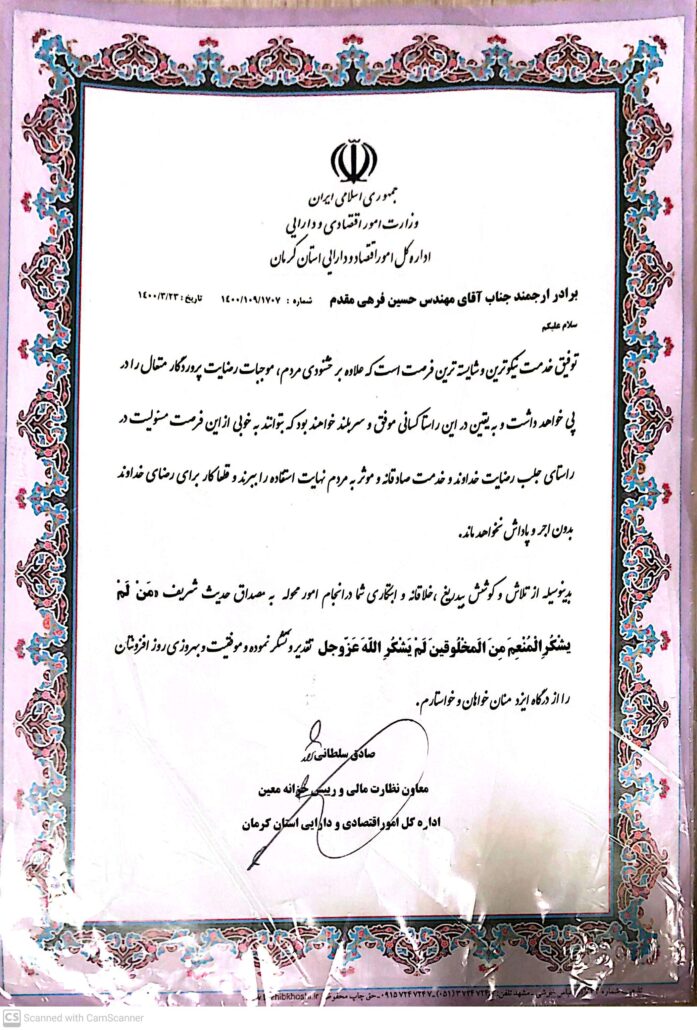 جمهوری اسلامی ایران
وزارت امور اقتصادی و دارایی
اداره کل امور اقتصاد و دارایی استان کرمان
برادر ارجمند جناب آقای مهندس حسین فرهی مقدم شماره : ۱۴۰۰/۱۰۹/۱۷۰۷ تاریخ : ۱۴۰۰/۳/۲۳
سلام علیکم
توفیق خدمت نیکوترین و شایسته ترین فرصت است که علاوه بر خشنودی مردم، موجبات رضایت پروردگار متعال را در
پی خواهد داشت و به یقین در این راستا کسانی موفق و سربلند خواهند بود که بتوانند به خوبی از این فرصت مسئولیت در
راستای جلب رضایت خداوند و خدمت صادقانه و موثر به مردم نهایت استفاده را ببرند و قطعا کار برای رضای خداوند
بدون اجر و پاداش نخواهد ماند.
بدینوسیله از تلاش و کوشش بیدریغ ،خلاقانه و ابتکاری شما درانجام امور محوله به مصداق حدیث شریف «مَنْ لَمْ
یشکُرِ الْمُنْعِمَ مِنَ الْمَخْلُوقینَ لَمْ یَشْکُرِ اللهَ عَزَّوجل تقدیر و تشکر نموده و موفقیت و بهروزی روز افزونتان
را از درگاه ایزد منان خواهان و خواستارم.
صادق سلطانی
معاون نظارت مالی و رییس خزانه معین
اداره کل امور اقتصادی و دارایی استان کرمان
مشهد تلفن: ۳۷۲۴۷۲۴ (۰۵۱) ۰۹۱۵۷۲۴۷۲۴۷ - حق چاپ محفوظ
CS Scanned with CamScanner